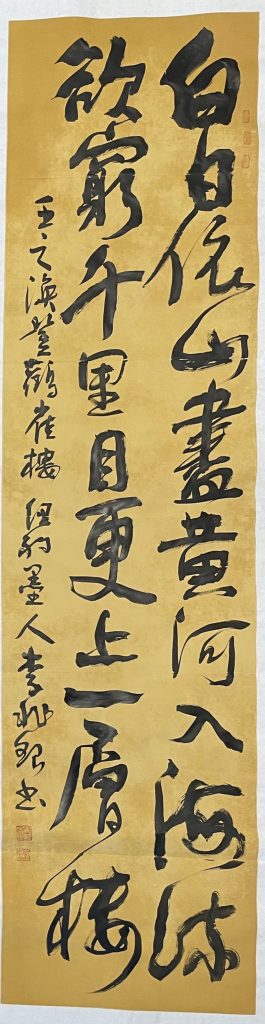 白日依山盡黃河入海流
欲窮千里目更上一層樓
王之渙登鸛雀樓 紐約墨人李兆銀书